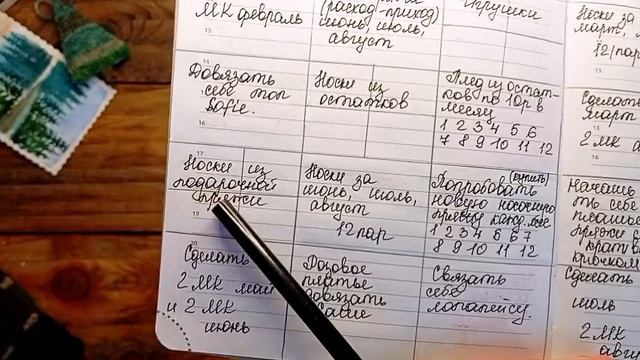 МК февраль
(расход-приход)
июнь, июль,
август
игрушки
Носки за
12 пар
Довязать
себе топ
Носки из
остатков
Плед из остат-
ков по 10р в
месяц
1 2 3 4 5 6
7 8 9 10 11 12
Сделать
март
2 МК
Носки из
подарочной
пряжи
Носки за
июнь, июль,
август
12 пар
(купить)
Попробовать
новую носочную
пряжу кажд. мес
1 2 3 4 5 6 7
8 9 10 11 12
крючком
Сделать
2 МК май
и 2 МК
июнь
Розовое
платье
довязать
Связать
себе
лопапейсу.
Сделать
июль
2 МК